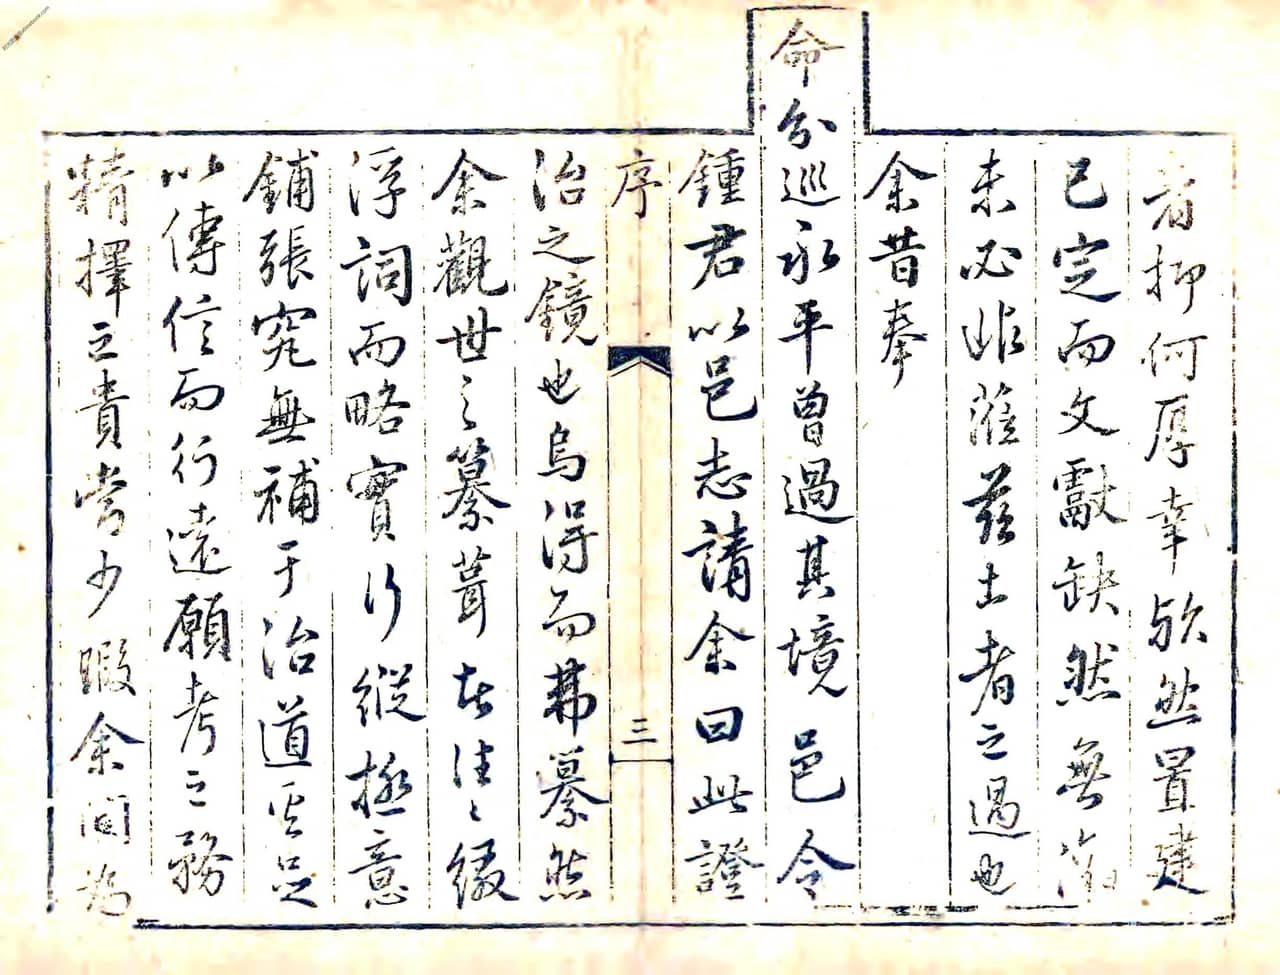 者抑何厚幸歟然置建
已定而文獻缺然無徵
未必非蒞茲土者之過也
余昔奉
命分巡永平曾過其境邑令
鍾君以邑志請余曰此證
序
三
治之鏡也烏得而弗纂然
余觀世之纂葺者往往緣
浮詞而略實行縱極意
鋪張究無補于治道不足
以傳信而行遠願考之務
精擇之貴當少暇余間為